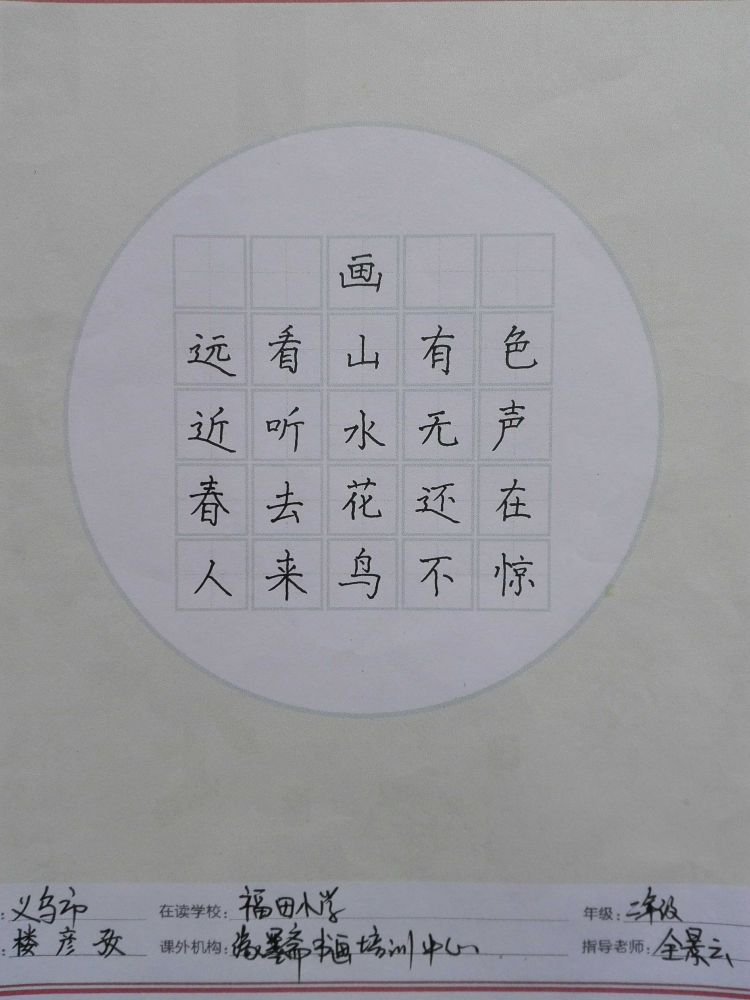 画
远看山有色
近听水无声
春去花还在
人来鸟不惊
: 义乌市 在读学校: 福田小学 年级: 二年级
: 楼彦 课外机构: 墨斋书画培训中心 指导老师: 全景云